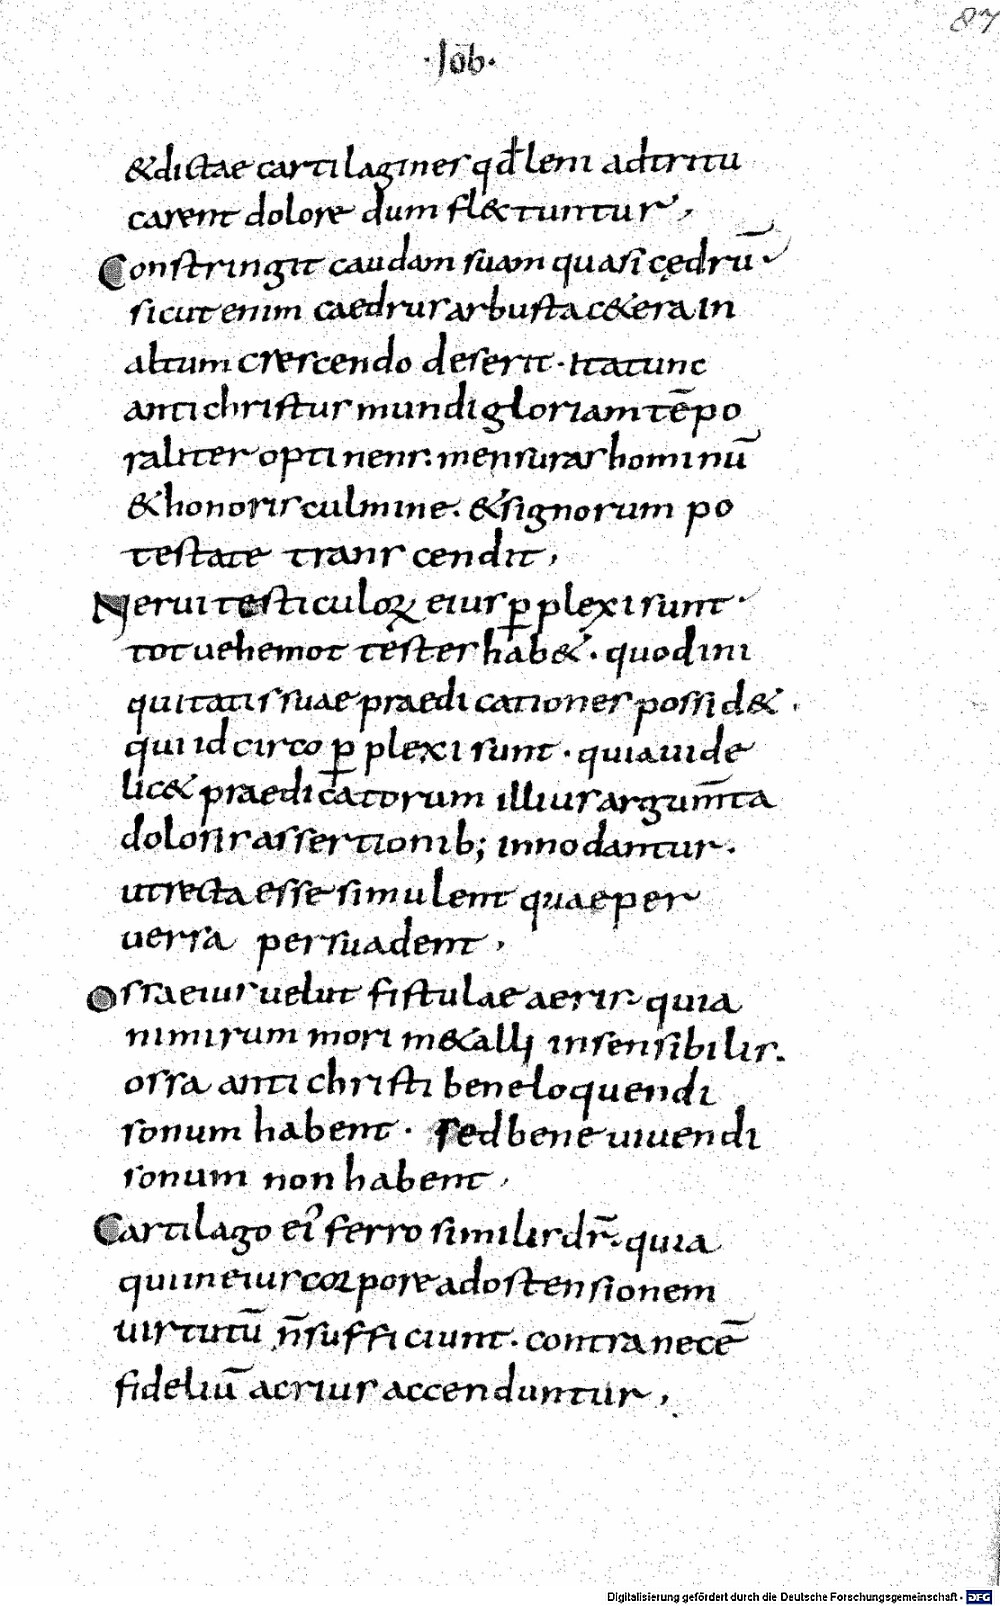 87
·Iob·
&dictae cartilagines qđ leni adtritu
carent dolore dum fl&tuntur,
Constringit caudam suam quasi cędrū·
sicut enim caedrus arbusta c&era in
altum crescendo deserit· Ita tunc
antichristus mundi gloriam tēpo
raliter optinens· mensuras hominū
& honoris culmine· & signorum po
testate transcendit,
Nerui testiculoꝝ eius ꝑplexi sunt·
tot uehemot testes hab&· quod ini
quitatis suae praedicationes possid&·
qui idcirco ꝑplexi sunt· quia uide
lic& praedicatorum illius argum̄ta
dolosis assertionib; innodantur·
ut recta esse simulent quae per
uersa persuadent,
Ossa eius uelut fistulae aeris· quia
nimirum mori m&alli insensibilis·
ossa antichristi bene loquendi
sonum habent· sed bene uiuendi
sonum non habent,
Cartilago ei᾽ ferro similis dr̄· quia
qui in eius corpore ad ostensionem
uirtutū n̄ sufficiunt· contra necē
fideliū acrius accenduntur,
Digitalisierung gefördert durch die Deutsche Forschungsgemeinschaft - DFG